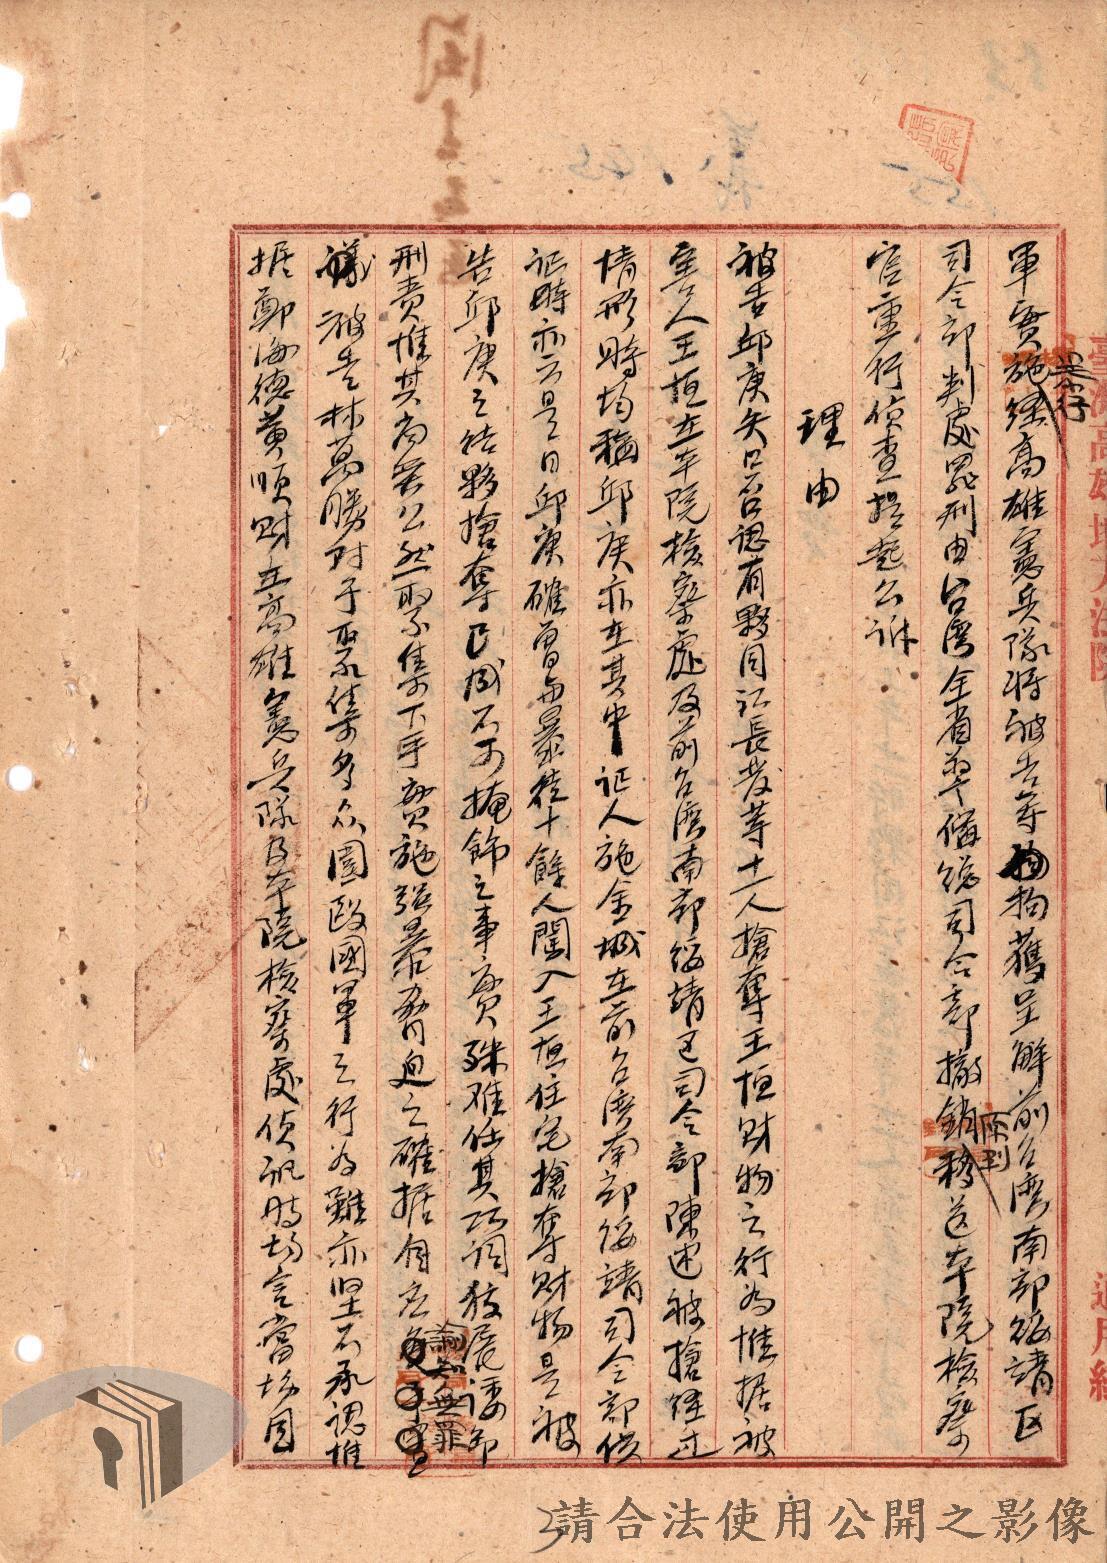 軍實施強行經高雄憲兵隊將被告等拘獲呈解前台灣南部綏靖區
司令部判處罪刑由台灣全省警備總司令部撤銷原判移送本院檢察
官重行偵查提起公訴
理由
被告邱庚矢口否認有夥同江長發等十一人搶奪王恒財物之行為惟据被
害人王恒在本院檢察處及前台灣南部綏靖區司令部陳述被搶經過
情形時均稱邱庚亦在其中証人施金城在前台灣南部綏靖司令部供
証時亦云是日邱庚確曾与暴徒十餘人闖入王恒住宅搶奪財物是被
告邱庚之結夥搶奪已成不可掩飾之事實殊难任其巧詞狡展諉卸
刑責惟其尚無公然聚集下手實施強暴脅迫之確据自应諭知無罪
被告林萬勝对于聚集多众圍毆國軍之行為雖亦堅不承認惟
据鄭海德黃順財在高雄憲兵隊及本院檢察處偵訊時均言當場目
臺灣高雄地方法院
通用紙
請合法使用公開之影像